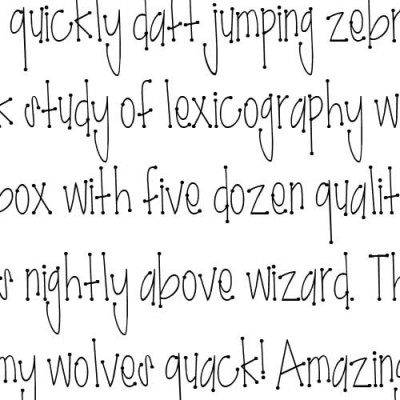 quickly daft jumping zebr
k study of lexicography w
box with five dozen qualit
s nightly above wizard. Th
my wolves quack! Amazing